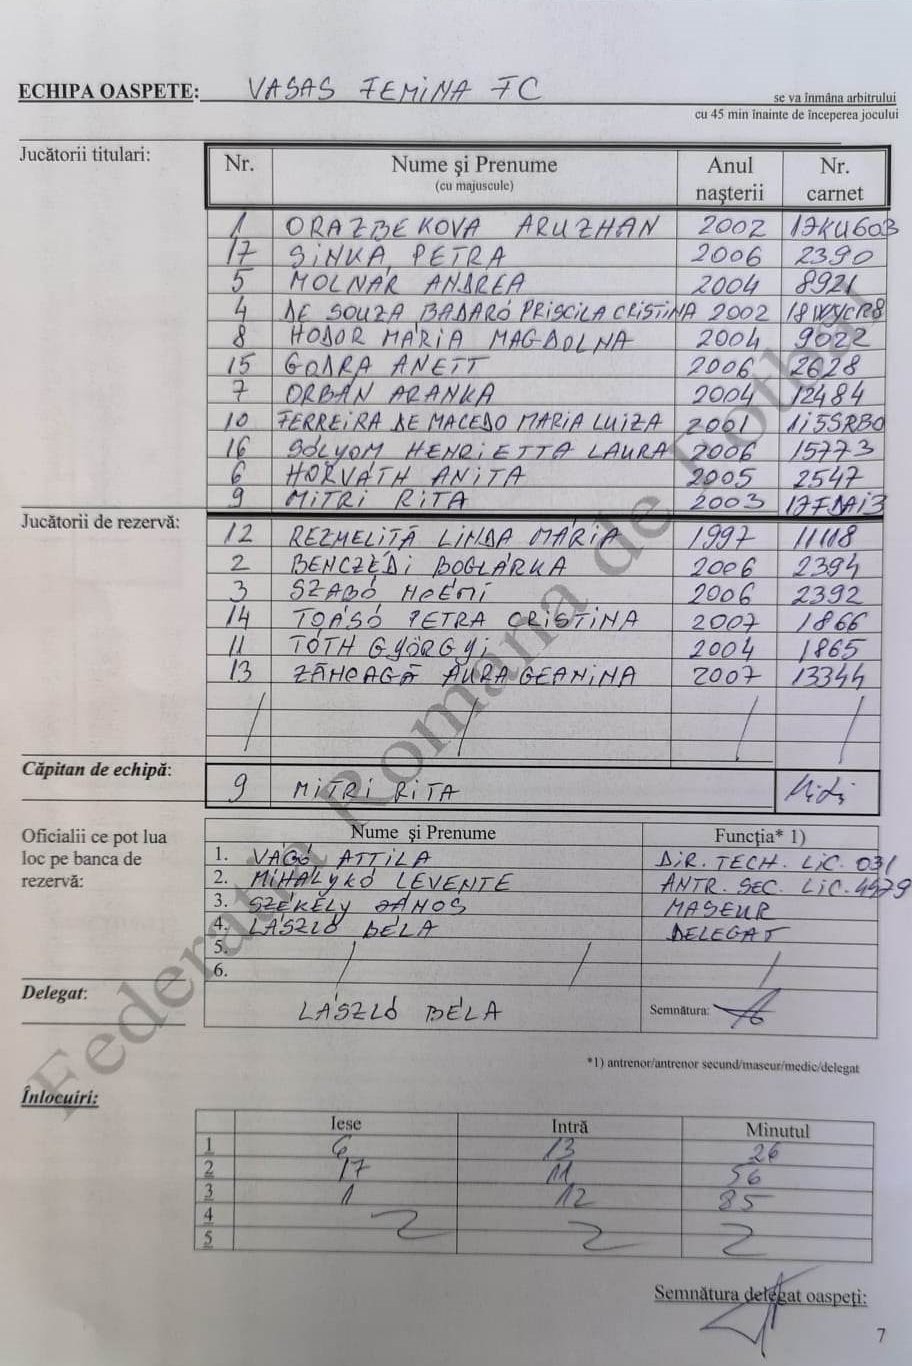 ECHIPA OASPETE: VASAS FEMINA FC
se va înmâna arbitrului
cu 45 min înainte de începerea jocului
Jucătorii titulari:
Nr. Nume şi Prenume (cu majuscule) Anul naşterii Nr. carnet
1 ORAZBEKOVA ARUZHAN 2002 17KU603
17 SINKA PETRA 2006 2390
5 MOLNÁR ANDREA 2004 8921
4 DE SOUZA BADARÓ PRISCILA CRISTINA 2002
8 HODOR MÁRIA MAGDOLNA 2004 9022
15 GODRA ANETT 2006 2628
7 ORBÁN ARANKA 2004 12484
10 FERREIRA DE MACEDO MARIA LUIZA 2001 1i5SRB0
16 SÓLYOM HENRIETTA LAURA 2006 15773
6 HORVÁTH ANITA 2005 2547
9 MITRI RITA 2003
Jucătorii de rezervă:
12 REZMELIȚĂ LINDA MÁRIA 1997
2 BENCZÉDI BOGLÁRKA 2006 2394
3 SZABÓ NOÉMI 2006 2392
14 TOÁSÓ PETRA CRISTINA 2007 1866
11 TÓTH GYÖRGYI 2004 1865
13 ZĂNOAGĂ AURA GEANINA 2007 13344
Căpitan de echipă: 9 MITRI RITA
Oficialii ce pot lua loc pe banca de rezervă:
Nume şi Prenume Funcţia* 1)
1. VÁGÓ ATTILA DIR. TECH. LIC. 031
2. MIHÁLYKÓ LEVENTE ANTR. SEC. LIC. 4979
3. SZÉKELY JÁNOS MASEUR
4. LÁSZLÓ BÉLA DELEGAT
5.
6.
Delegat: LÁSZLÓ BÉLA Semnătura:
*1) antrenor/antrenor secund/maseur/medic/delegat
Înlocuiri:
Iese Intră Minutul
1 6 13 26
2 17 11 56
3 1 12 85
4
5
Semnătura delegat oaspeţi:
7
Federatia Romana de Fotbal